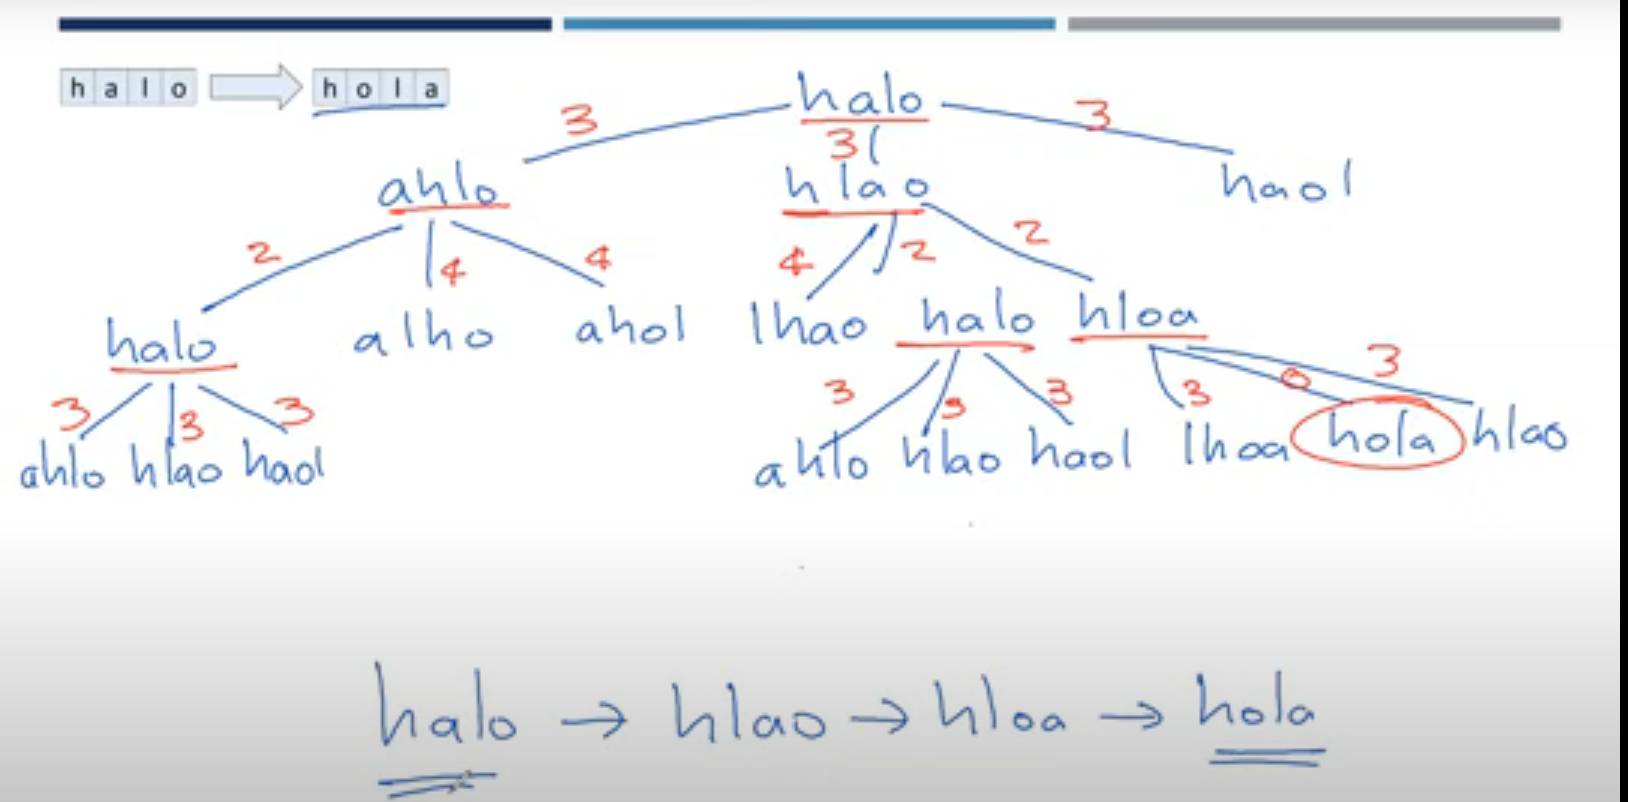 h a l o h o l a
halo
3 3 3
ahlo hlao haol
2 4 4 4 2 2
halo alho ahol lhao halo hloa
3 3 3 3 3 3 3 0 3
ahlo hlao haol ahlo hlao haol lhoa hola hlao
halo → hlao → hloa → hola